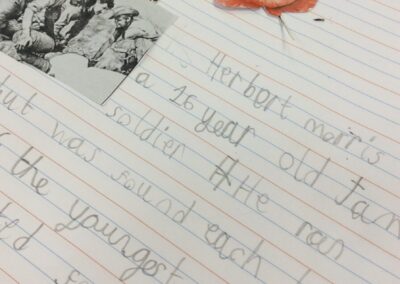 Herbert morris
a 16 year old
soldier He ran
but was found each
the youngest